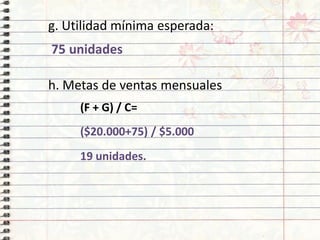 g. Utilidad mínima esperada:
75 unidades
h. Metas de ventas mensuales
(F + G) / C=
($20.000+75) / $5.000
19 unidades.